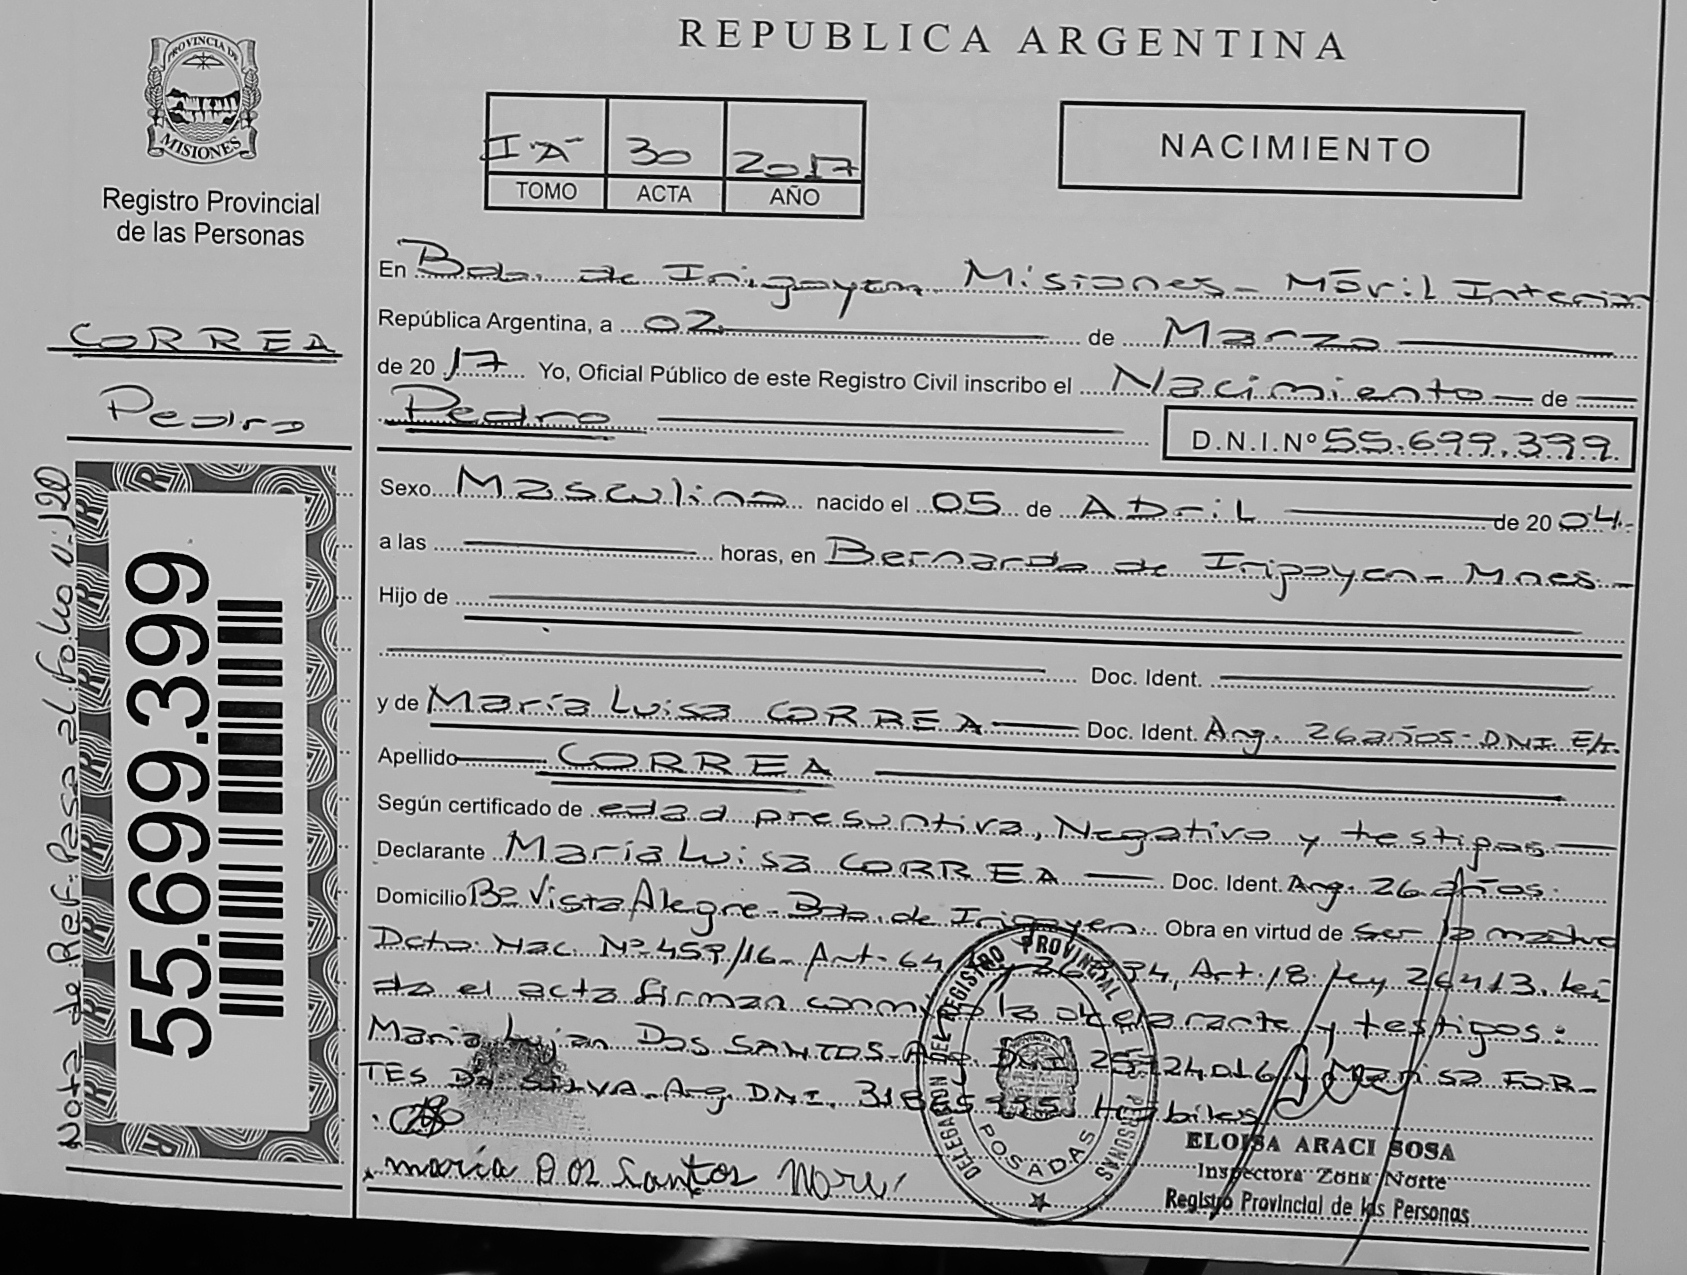 REPUBLICA ARGENTINA
PROVINCIA DE
MISIONES
Registro Provincial
de las Personas
I "A" 30 2017
TOMO ACTA AÑO
NACIMIENTO
CORREA
Pedro
Nota de Ref. Pasa al folio N: 120
55.699.399
En Bdo. de Irigoyen Misiones - Móvil Interior
República Argentina, a 02 de Marzo
de 2017 Yo, Oficial Público de este Registro Civil inscribo el Nacimiento de
Pedro D.N.I.Nº 55.699.399.
Sexo Masculino nacido el 05 de Abril de 2004.-
a las horas, en Bernardo de Irigoyen - Mnes -
Hijo de
Doc. Ident.
y de María Luisa CORREA Doc. Ident. Arg. 26 años - DNI E/T.
Apellido CORREA
Según certificado de edad presuntiva, Negativo y testigos
Declarante María Luisa CORREA Doc. Ident. Arg. 26 años.
Domicilio Bº Vista Alegre - Bdo. de Irigoyen. Obra en virtud de ser la madre
Dcto. Nac. Nº 459/16 - Art. 64 y Art. 18 Ley 26413. Leí
da el acta firman conmigo la declarante y testigos:
María Lujan DOS SANTOS - Arg. DNI y FOR-
TES DA SILVA - Arg. DNI. Hábiles
maría Dos Santos
DELEGACIÓN DEL REGISTRO PROVINCIAL DE LAS PERSONAS
POSADAS
ELOISA ARACI SOSA
Inspectora Zona Norte
Registro Provincial de las Personas